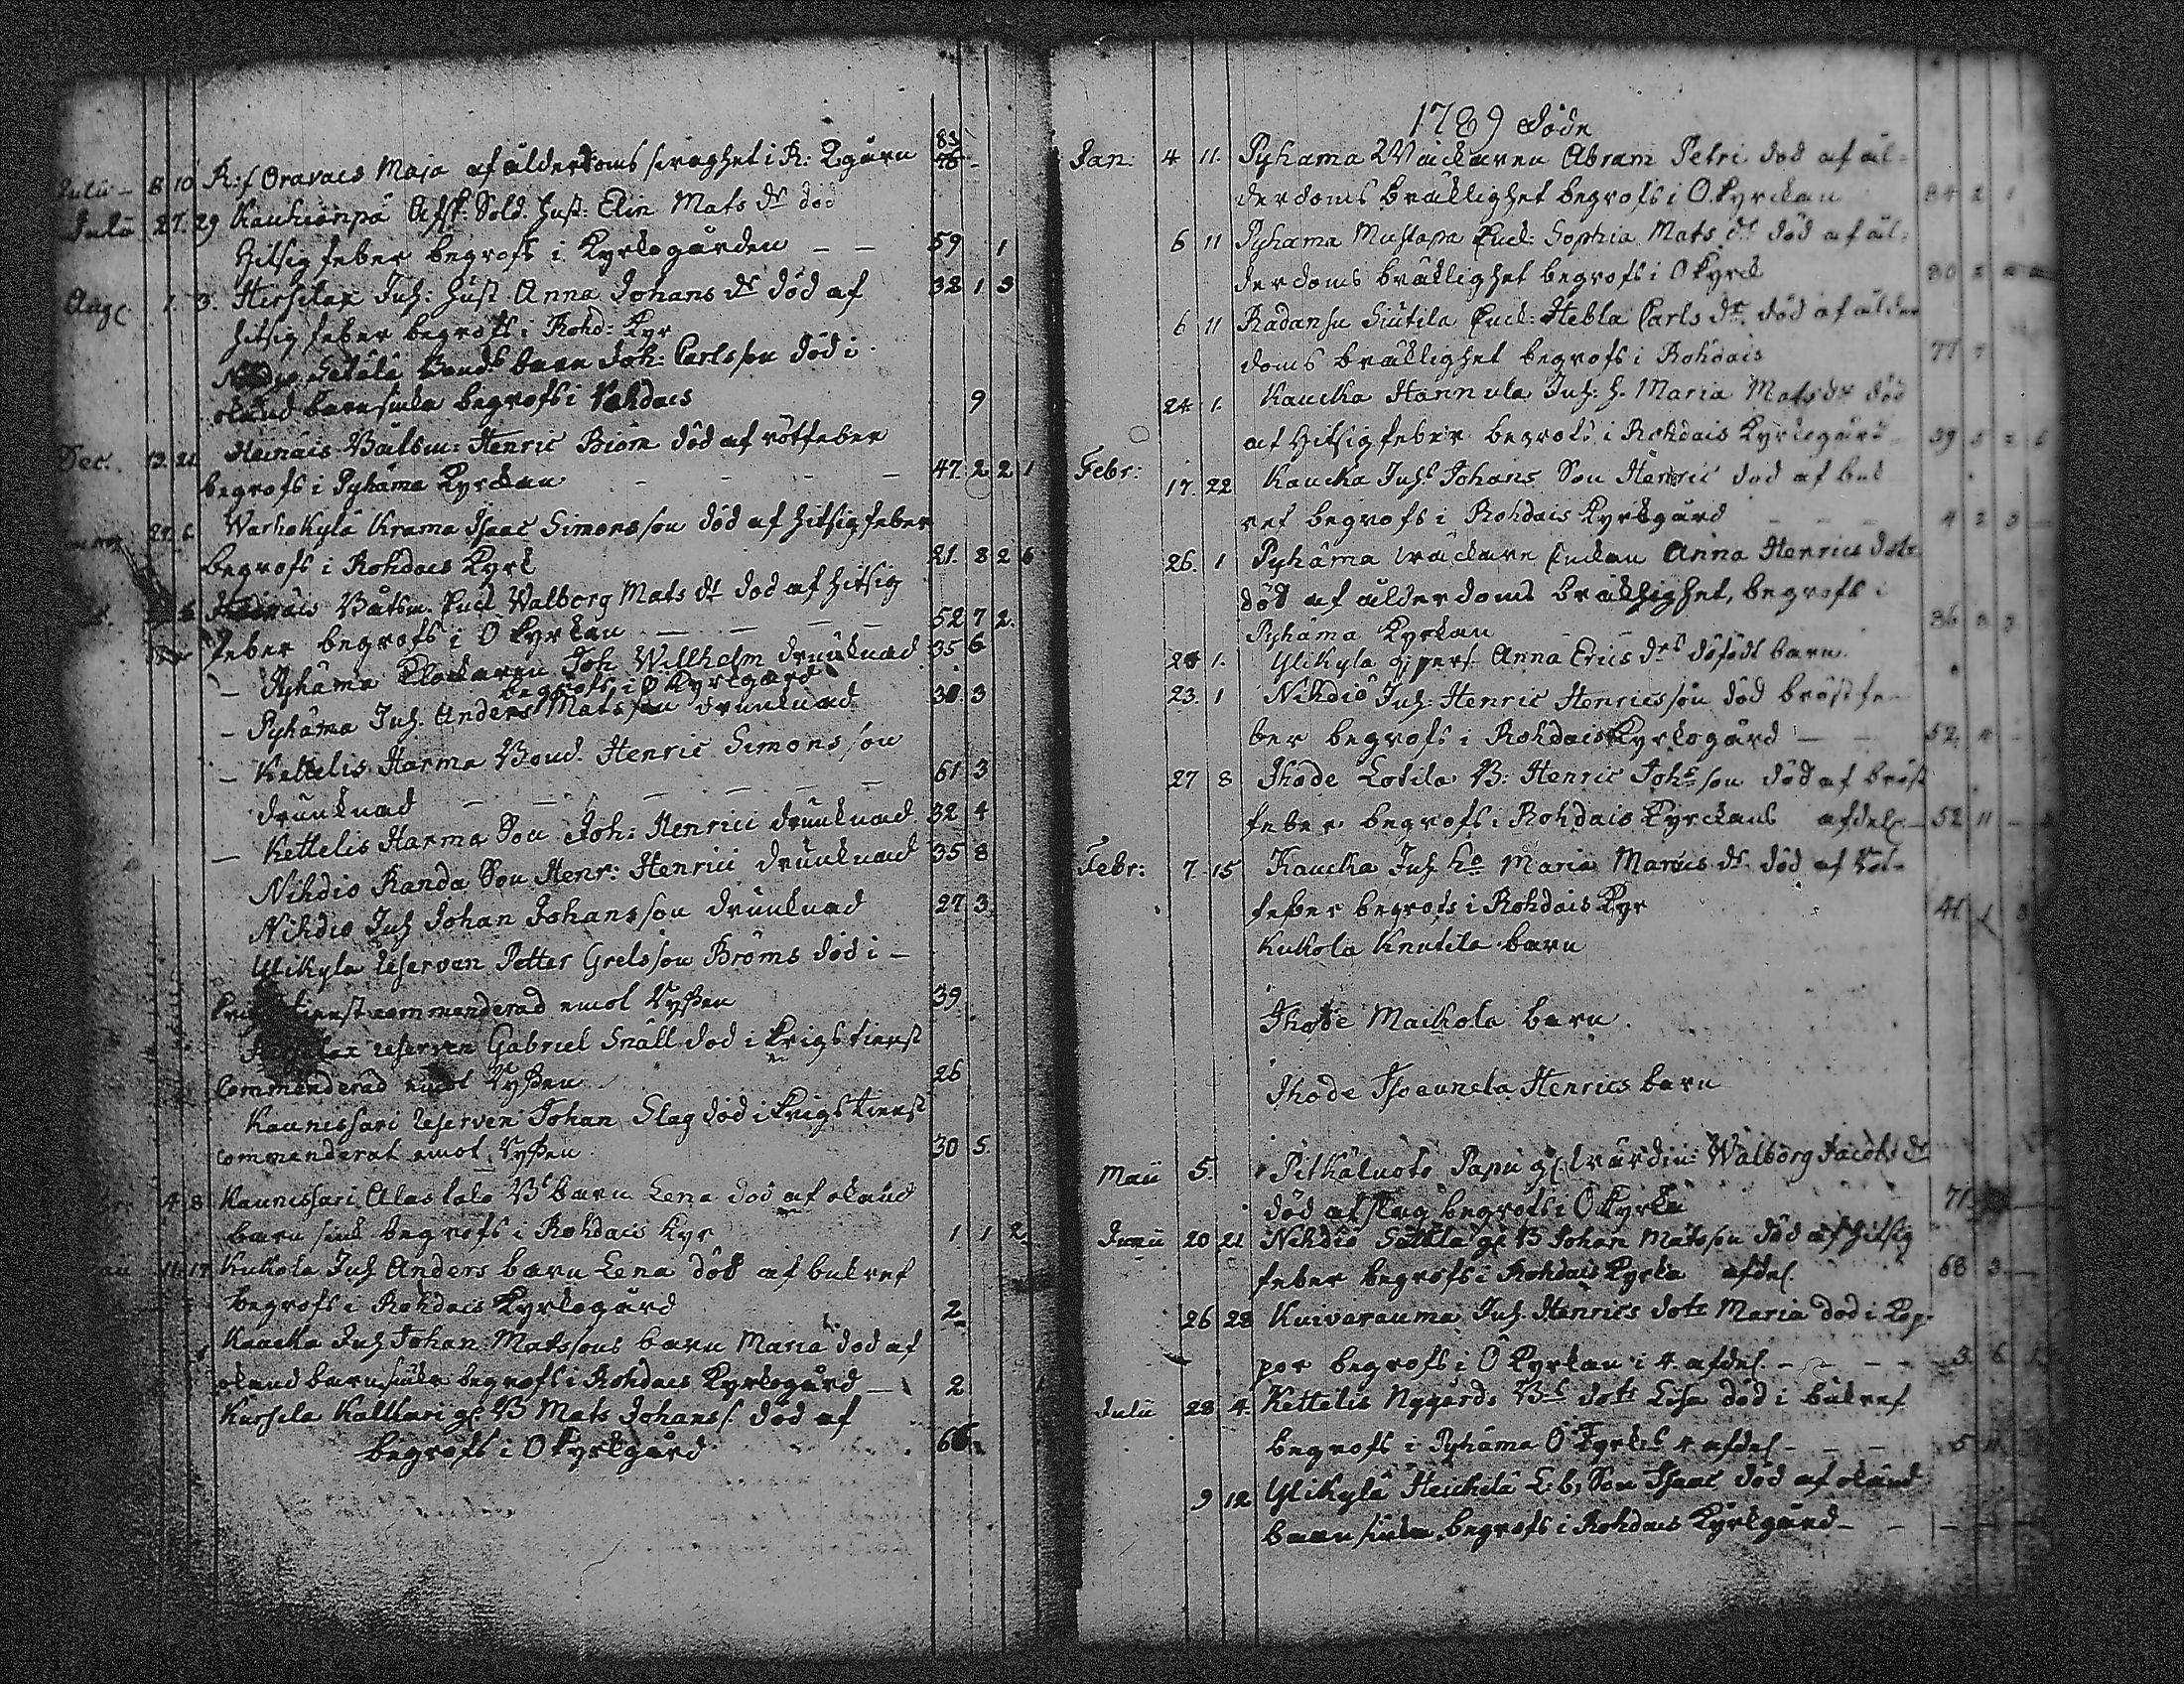 83
Julii - 8 10 R:f Oravais Maja af ålderdoms svaghet i R: Kgårn 78 -
Julii 27. 29 Kauhianpä Afsk: Sold. Hust: Elin Mats dr död
Hitsig feber begrofs i Kyrkogården - - 59 1
Aug 1. 3. Hirselax Inh: Hust Anna Johans dr död af 32 1 3
hitsig feber begrofs i Rohd: Kyr
Setälä Bonds barn Joh: Carlsson död i
okänd barnsiuka begrofs i Rohdais 9
Dec. 13. 21 Heinäis Båtsm: Henric Biörn död af rötfeber
begrofs i Pyhäma Kyrckan - - - - 47. 2 2 1
29. 6 Warhokylä Krama Isaac Simonsson död af hitsig feber
begrofs i Rohdais Kyrk 21. 8 2 6
Heinäis Båtsm. Enck Walborg Mats dr död af hitsig
feber begrofs i O Kyrkan - - - - 52 7 2.
- Pyhäma Klockaren Joh Willhelm drunknad 35 6
begrofs i O Kyrkgård
- Pyhäma Inh. Anders Matsson drunknad 30. 3
- Kettelis Harma Bond. Henric Simonsson
drunknad - - - - - 61 3
- Kettelis Harma Son Joh: Henrici drunknad. 32 4
Nihdio Randa Son Henr: Henrici drunknad 35 8
Nihdio Inh Johan Johansson drunknad 27 3
Ylikyla reserven Petter Grelsson Bröms död i -
tienst commenderad emot Ryssen 39.
reserven Gabriel Snäll död i krigstienst
Commenderad emot Ryssen 26
Kaunissari reserven Johan Slag död i krigstienst
commenderat emot Ryssen 30 5.
4 8 Kaunissari Alastalo Bs barn Lena död af okänd
barn siuk begrofs i Rohdais Kyr 1. 1 2
11. 17 Kukola Inh Anders barn Lena död af bukref
begrofs i Rohdais Kyrkogård 2
Kaucka Inh Johan Matssons barn Maria död af
okänd barnsiuka begrofs i Rohdais Kyrkogård - 2
Kursila Kallkari gl: B Mats Johanss. död af
begrofs i O Kyrkgård 66
1789 Döde
Jan: 4 11. Pyhama Wäckaren Abram Petri död af ål=
derdoms bräcklighet begrofs i O. Kyrckan 84 2 1
6 11 Pyhama Mustapa Enck: Sophia Mats dr död af ål=
derdoms bräcklighet begrofs i O Kyrck 80
6 11 Radansu Siutila Enck: Hebla Carls dr. död af ålder
doms bräcklighet begrofs i Rohdais 77 7
24 1. Kaucka Hannula Inh: h. Maria Mats dr död
af Hitsig feber begrofs i Rohdais Kyrkogård 39 5
Febr: 17. 22 Kaucka Inhs Johans Son Henric död af buk
ref begrofs i Rohdais Kyrkgård - - - 4 2 3
26. 1 Pyhäma wäckare Enckan Anna Henrics dotr
död af ålderdoms bräcklighet, begrofs i
Pyhäma Kyrkan - - 36
1. Ylikyla Anna Erics drs döfödt barn.
23. 1 Nihdio Inh: Henric Henricsson död bröstfe-
ber begrofs i Rohdais Kyrkogård - - 52.
27 8 Ihode Lotila B: Henric Johsson död af bröst
feber begrofs i Rohdais Kyrckans afdel. - 52 11
Febr: 7. 15 Kaucka Inh ho Maria Marcis dr. död af röt-
feber begrofs i Rohdais Kyr 41
Kukola Knutila barn
Ihode Maikola barn.
Ihode Isoannela Henrics barn
Maii 5. Pitkäluoto Papu gl wärdin: Walborg Jacobs dr
död af slag begrofs i O Kyrka 71.
Junii 20 21 Nihdio Sättilä gl B Johan Matsson död af hitsig
feber begrofs i Rohdais Kyrka afdel. 68 3
26 28 Kuivarauma Inh. Henrics dotr Maria död i Kop-
por begrofs i O Kyrkan i 4 afdel. - - - - 3. 6
Julii 28 4. Kettelis Nygårds Bs dotr Lisa död i bukref
begrofs i Pyhäma O Kyrkes 4 afdel - - - 5 11
9 12 Ylikylä Heickilä L:b, Son Isaac död af okänd
barn siuka begrofs i Rohdais Kyrkgård - - - -